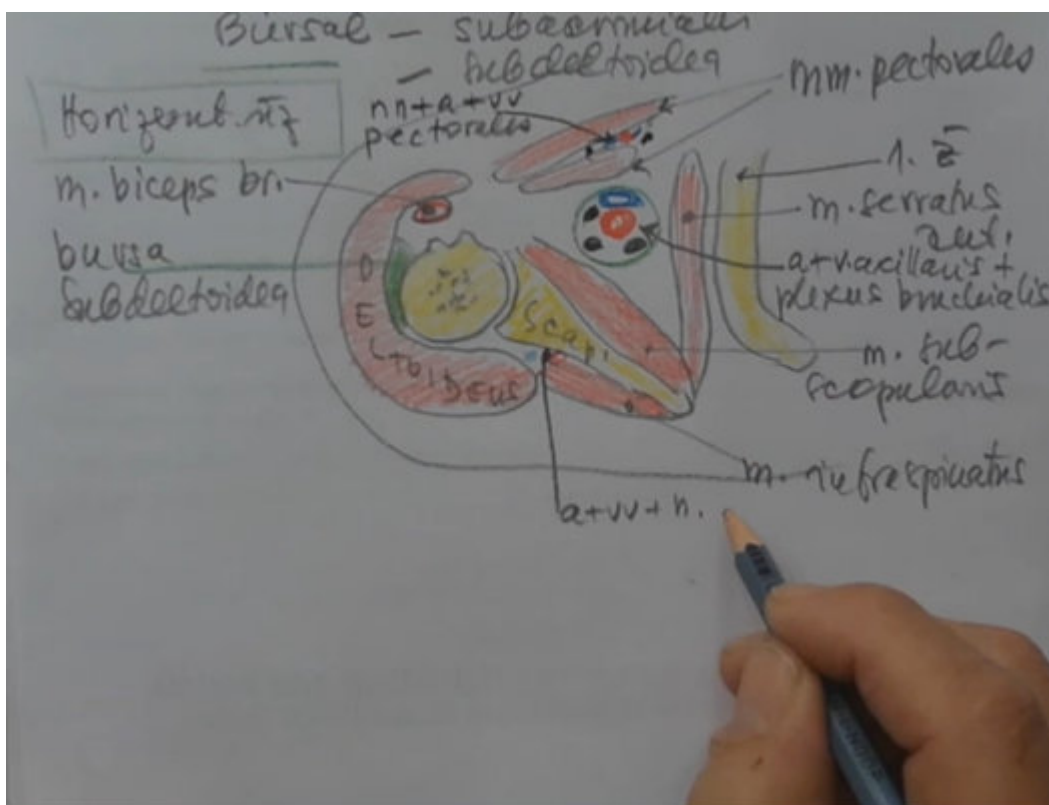 Bursae – subacromialis
– subdeltoidea
Horizont.
nn+a+vv
pectorales
mm. pectorales
m. biceps br.
bursa
subdeltoidea
1.
m. serratus
ant.
a+v. axillaris +
plexus brachialis
m. sub-
scapularis
DELTOIDEUS
Scap.
m. infraspinatus
a+vv+n.